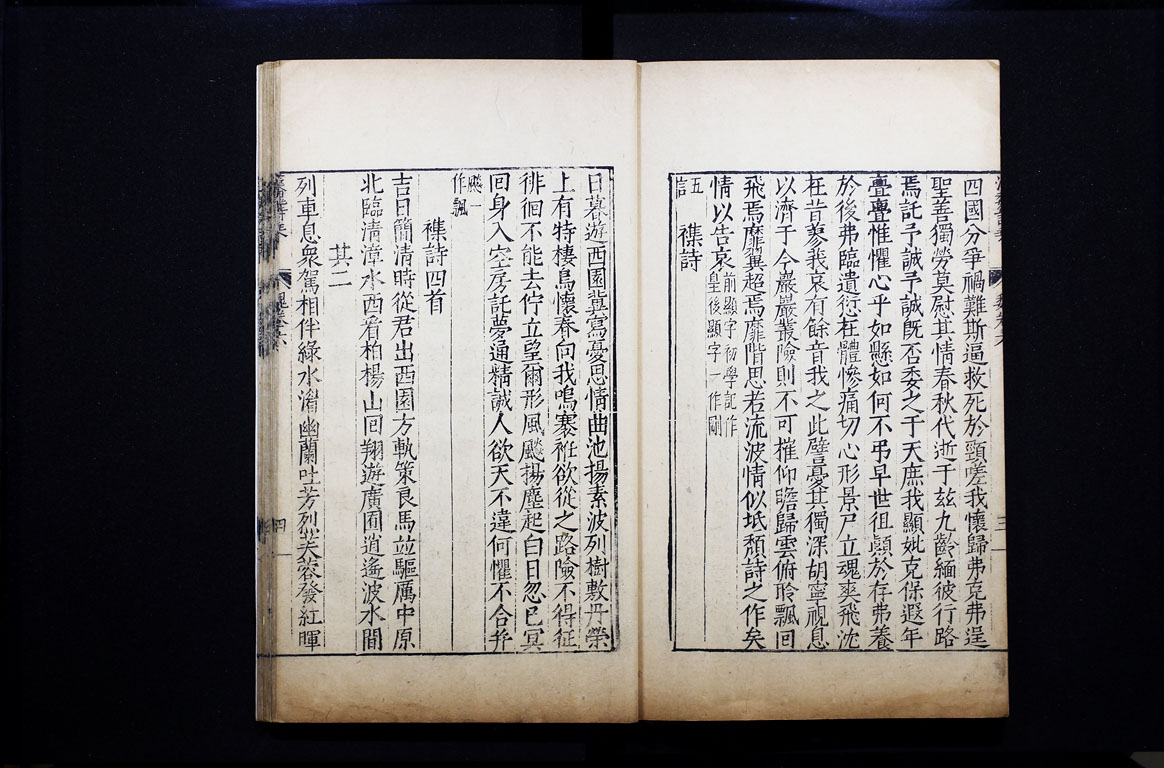 四國分爭禍難斯逼救死於頸嗟我懷歸弗克弗逞
聖善獨勞莫慰其情春秋代逝于玆九齡緬彼行路
焉託予誠予誠旣否委之于天庶我顯妣克保遐年
亹亹惟懼心乎如懸如何不弔早世徂顚於存弗養
於後弗臨遺愆在體慘痛切心形景尸立魂爽飛沈
在昔蓼莪哀有餘音我之此譬憂其獨深胡寧視息
以濟于今巖巖叢險則不可摧仰瞻歸雲俯聆飄回
飛焉靡翼超焉靡階思若流波情似坻頹詩之作矣
情以告哀前顯字初學記作
皇後顯字一作剛
五 襍詩
言
日暮遊西園冀寫憂思情曲池揚素波列樹敷丹榮
上有特棲鳥懷春向我鳴褰袵欲從之路險不得征
徘徊不能去佇立望爾形風飈揚塵起白日忽已冥
回身入空房託夢通精誠人欲天不違何懼不合幷
飈一
作飄
襍詩四首
吉日簡清時從君出西園方軌策良馬並驅厲中原
北臨清漳水西看柏楊山回翔遊廣囿逍遙波水間
其二
列車息衆駕相伴綠水湄幽蘭吐芳烈芙蓉發紅暉